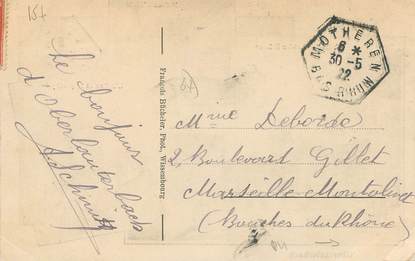 15f
Le bonjour
d'Oberlauterbach
A. Schmitt
François Bücheler, Phot, Wissembourg
67
MOTHEREN
8 *
30-5
22
BAS RHIN
Mme Deborde
2, Boulevart Gillet
Marseille-Montolivet
(Bouches du Rhône)